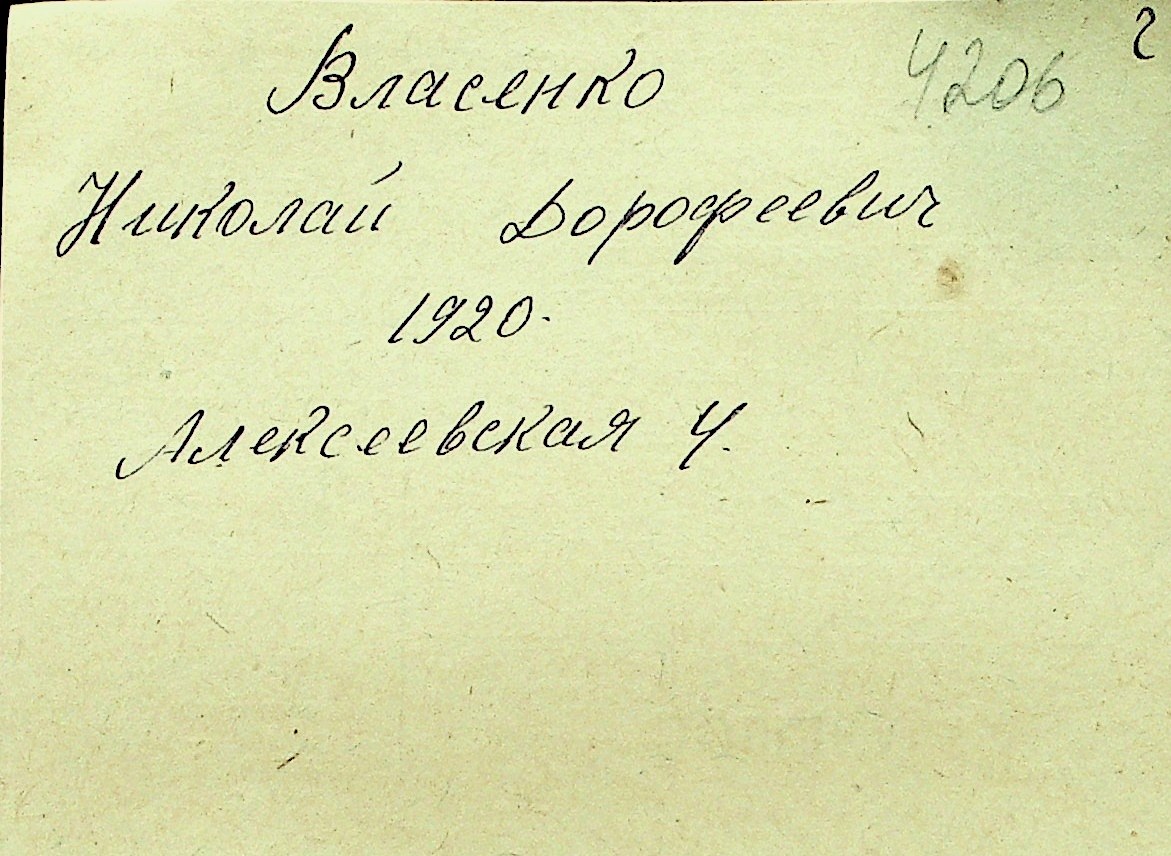 Власенко 4206 2
Николай Дорофеевич
1920.
Алексеевская 4.